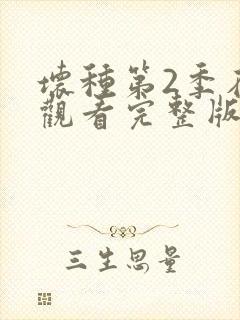 壞種第2季在
觀看完整版
三生思量